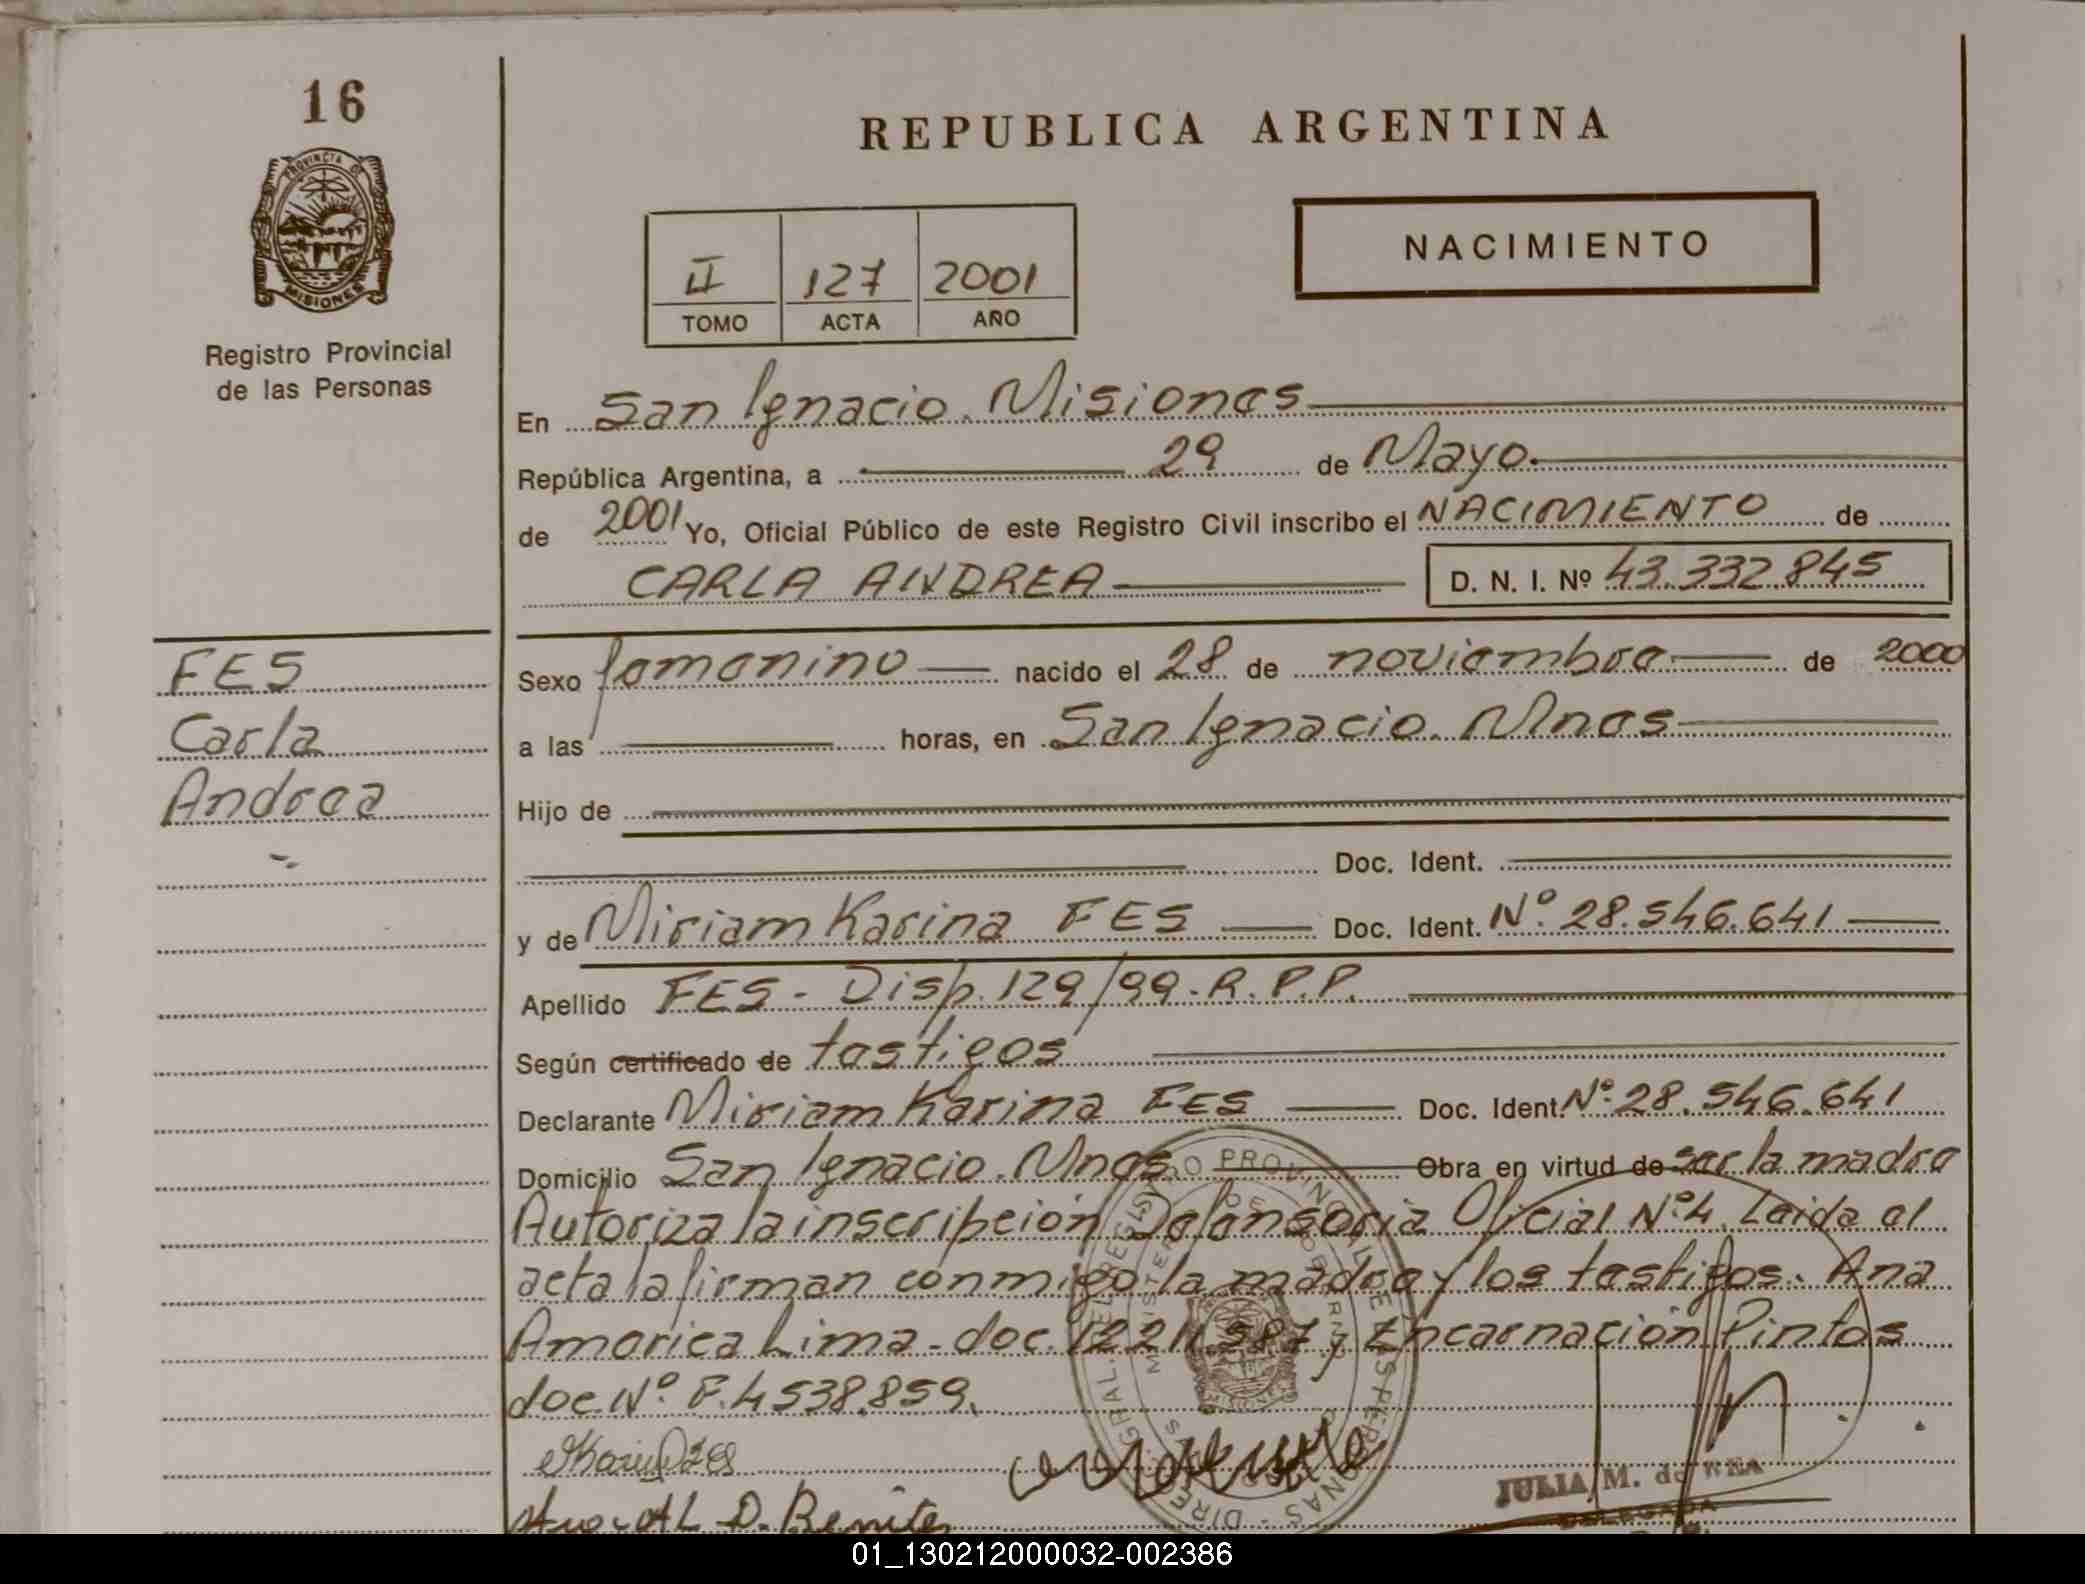 16
REPUBLICA ARGENTINA
PROVINCIA DE
MISIONES
Registro Provincial
de las Personas
NACIMIENTO
II 127 2001
TOMO ACTA AÑO
En San Ignacio. Misiones
República Argentina, a 29 de Mayo.
de 2001 Yo, Oficial Público de este Registro Civil inscribo el NACIMIENTO de
CARLA ANDREA D. N. I. Nº 43.332.845
FES
Carla
Andrea
Sexo femenino nacido el 28 de noviembre de 2000
a las horas, en San Ignacio. Mnes
Hijo de
Doc. Ident.
y de Miriam Karina FES Doc. Ident. Nº. 28.546.641
Apellido FES - Disp. 129/99. R.P.P.
Según certificado de testigos
Declarante Miriam Karina FES Doc. Ident. Nº. 28.546.641
Domicilio San Ignacio. Mnes Obra en virtud de ser la madre
Autoriza la inscripción Defensoria Oficial Nº 4. Leida el
acta la firman conmigo la madre y los testigos. Ana
America Lima - doc. y Encarnación Pintos
doc Nº. F. 4538.859.
D. Benitez
JULIA M. de
DELEGADA
01_130212000032-002386